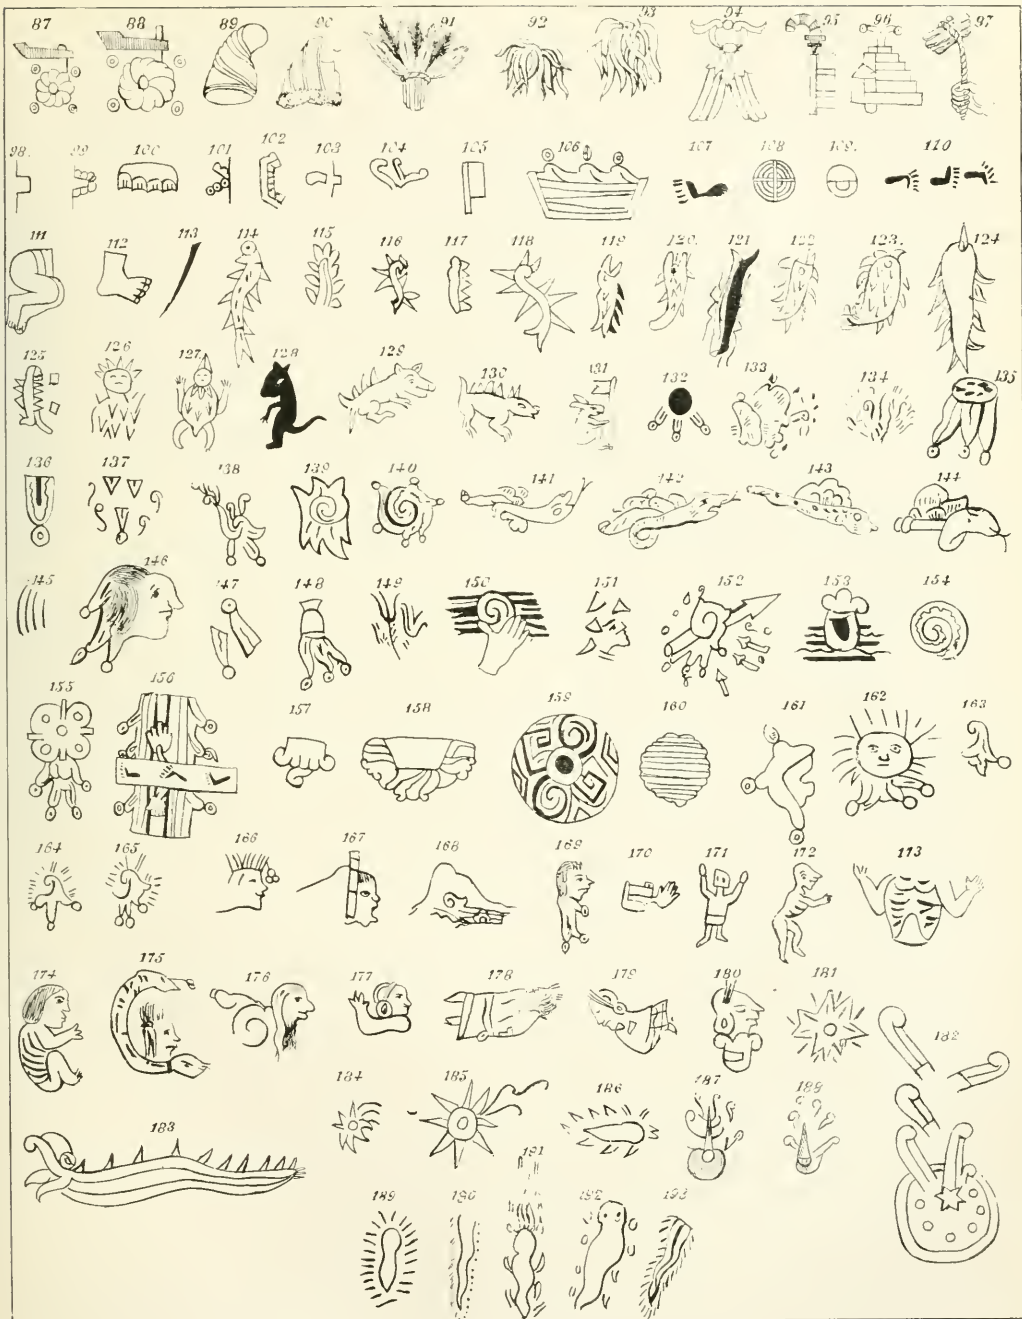 87 88 89 90 91 92 93 94 95 96 97
98. 99 100 101 102 103 104 105 106 107 108 109. 110
111 112 113 114 115 116 117 118 119 120. 121 122 123. 124
125 126 127. 128 129 130 131 132 133 134 135
136 137 138 139 140 141 142 143 144
145 146 147 148 149 150 151 152 153 154
155 156 157 158 159 160 161 162 163
164 165 166 167 168 169 170 171 172 173
174 175 176 177 178 179 180 181 182
183 184 185 186 187 188
189 190 191 192 193